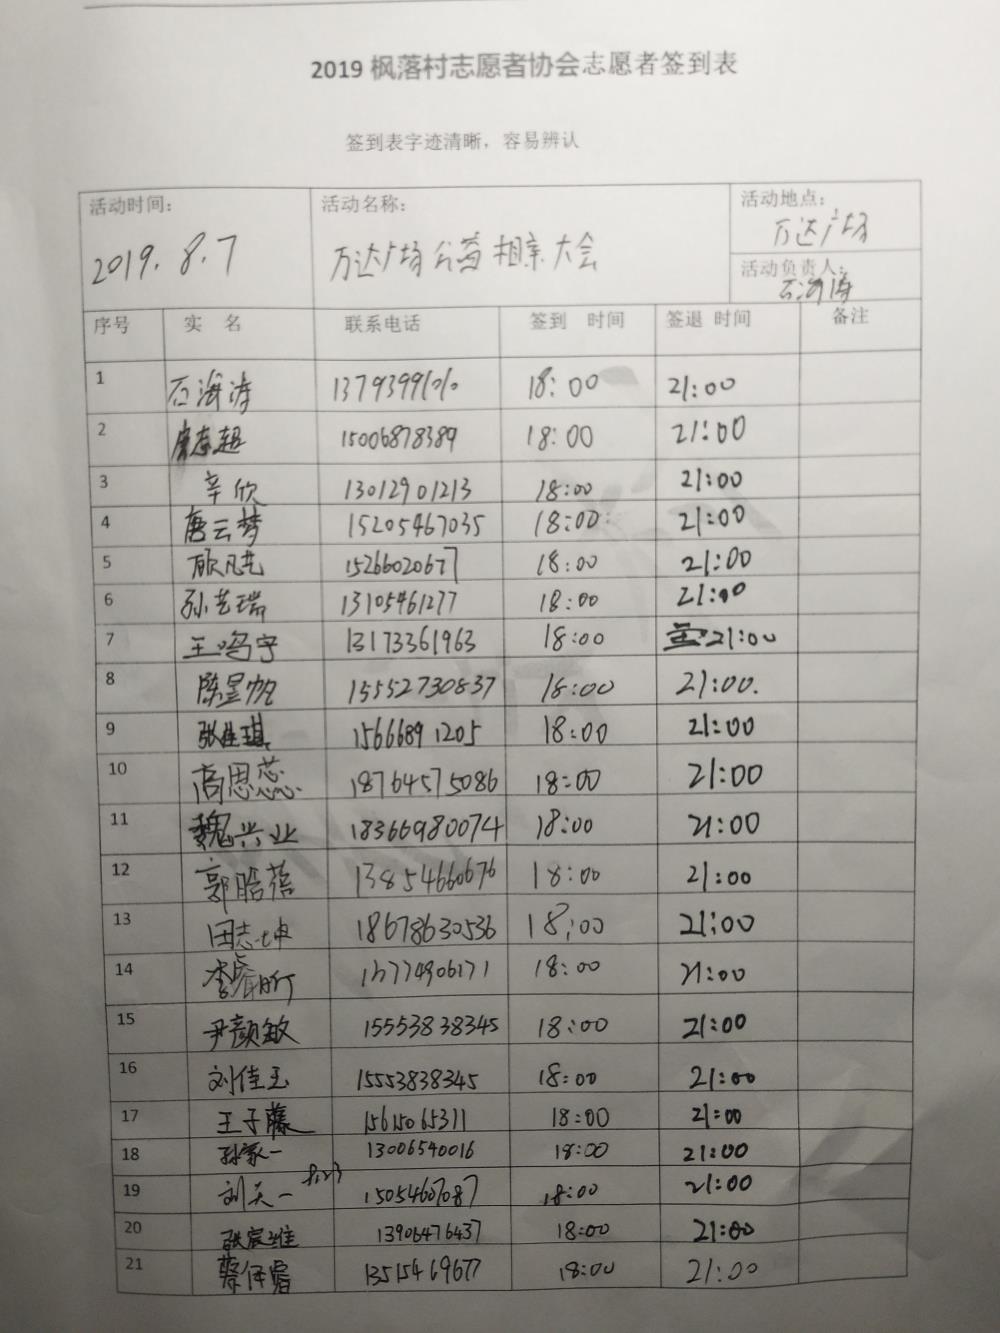 2019 枫落村志愿者协会志愿者签到表
签到表字迹清晰，容易辨认
活动时间： 活动名称： 活动地点：
2019.8.7 万达广场公益相亲大会 万达广场
活动负责人：石海涛
序号 实 名 联系电话 签到 时间 签退 时间 备注
1 石海涛 18:00 21:00
2 15006878389 18:00 21:00
3 辛欣 13012901213 18:00 21:00
4 唐云梦 15205467035 18:00 21:00
5 15266020677 18:00 21:00
6 孙艺瑞 13105461277 18:00 21:00
7 王鸣宇 13173361963 18:00 21:00
8 陈星帆 15552730837 18:00 21:00.
9 张佳琪 15666891205 18:00 21:00
10 高思蕊 18764575086 18:00 21:00
11 魏兴业 18366980074 18:00 21:00
12 郭皓蓓 13854660676 18:00 21:00
13 田志坤 18678630536 18:00 21:00
14 李睿昕 18:00 21:00
15 尹颜敏 15553838345 18:00 21:00
16 刘佳玉 15553838345 18:00 21:00
17 王子藤 1561506531 18:00 21:00
18 孙家一 13006540016 18:00 21:00
19 刘天一 15054607087 18:00 21:00
20 张宸维 13906476437 18:00 21:00
21 蔡保睿 13515469677 18:00 21:00